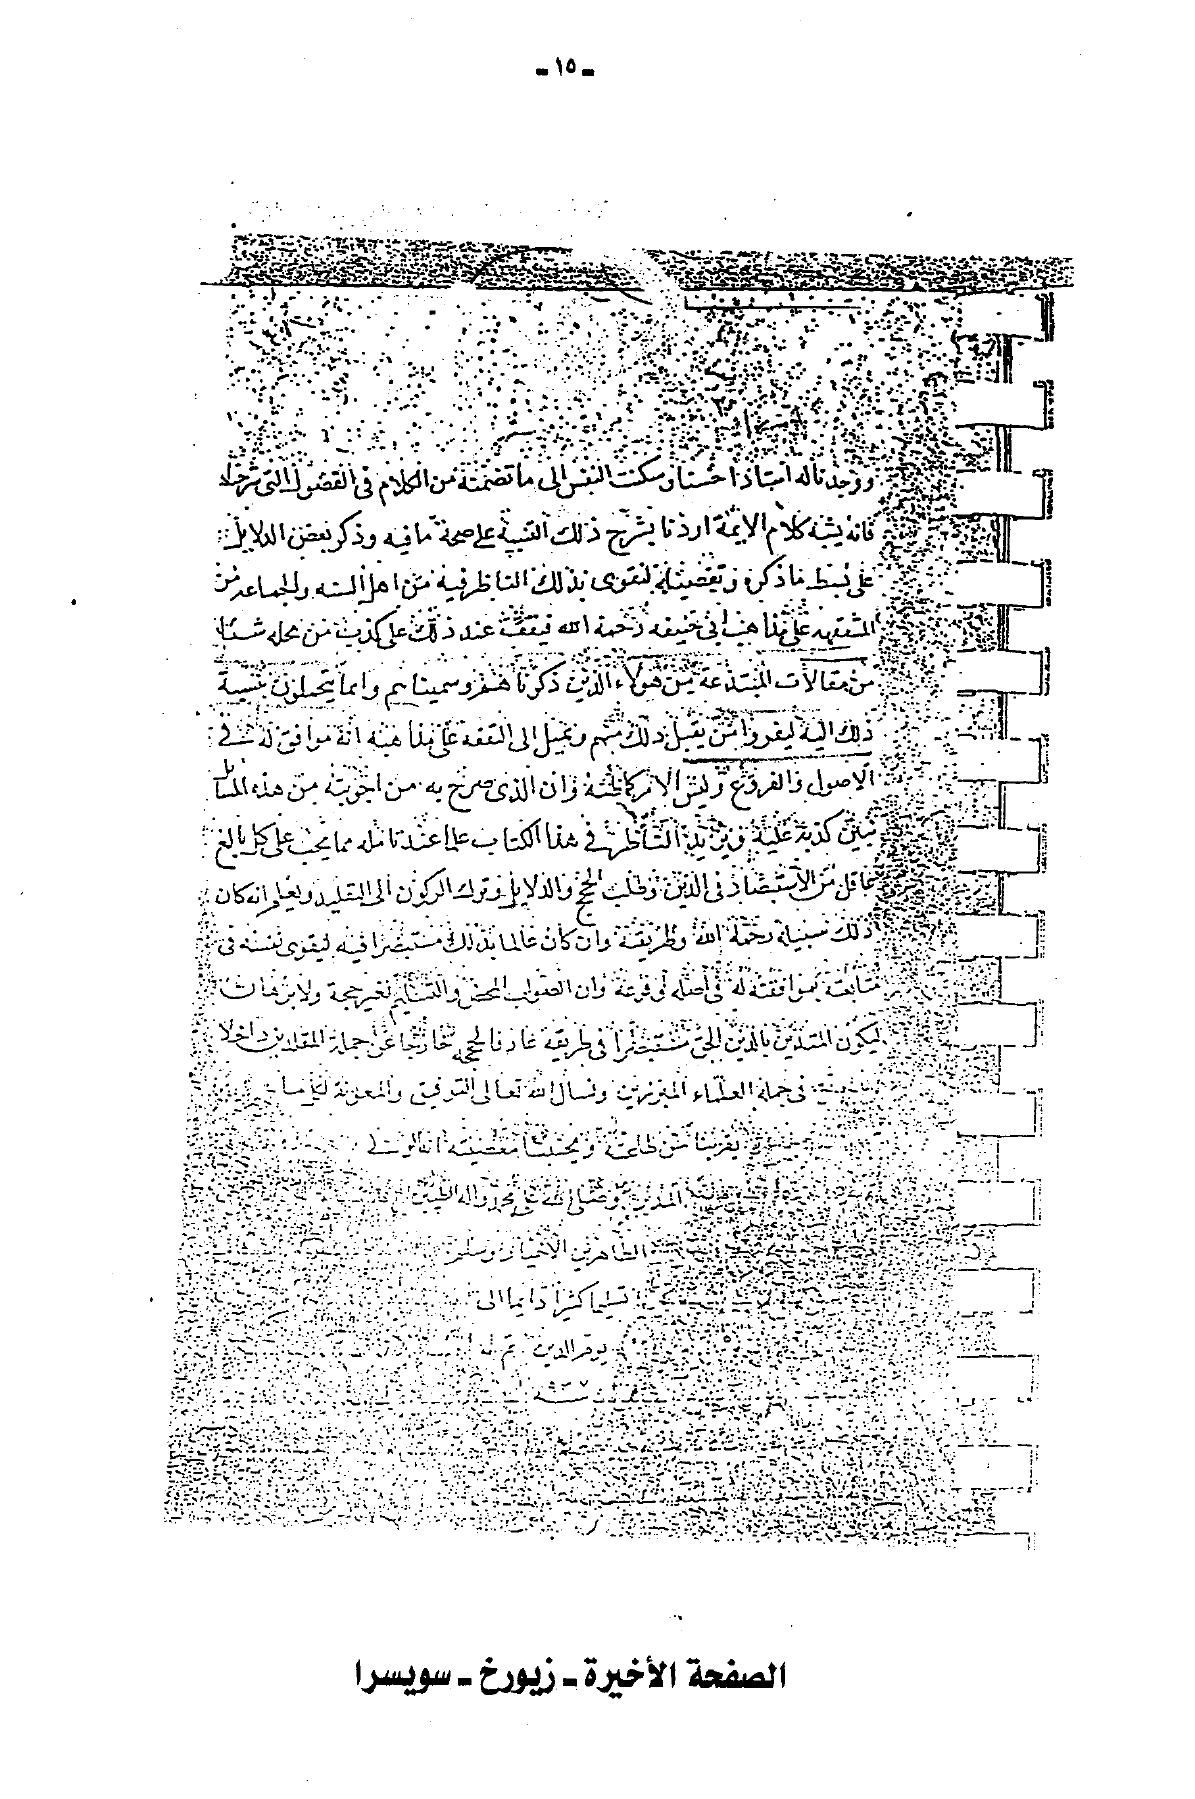 - ١٥ -
ووجدنا له اسنادا حسنا وسكنت النفس الى ما تضمنه من الكلام في الفصول التي شرحناها
فانه يشبه كلام الايمة اردنا بشرح ذلك التنبيه على صحة ما فيه وذكر بعض الدلايل
على بسط ما ذكره وتفصيله ليقوى بذلك الناظر فيه من اهل السنه والجماعه من
المتفقهه على مذاهب ابي حنيفه رحمة الله فيقف عند ذلك على كذب من نحله شيئا
من مقالات المبتدعة من هولاء الذين ذكرناهم وسميناهم وانما ينتحلون بنسبة
ذلك اليه ليغروا من يقبل ذلك منهم ويميل الى التفقه على مذاهبه انه موافق له في
الاصول والفروع وليس الامر كما ظنه وان الذي صرح به من اجوبته من هذه المسايل
يبين كذبه عليه ويزيد الناظر في هذا الكتاب علما عند تامله مما يجب على كل بالغ
عاقل من الاستبصار في الدين وطلب الحجج والدلايل وترك الركون الى التقليد ويعلم انه كان
ذلك سبيله رحمة الله وطريقته وان كان عالما بذلك مستبصرا فيه ليقوى نفسه في
متابعته بموافقته له في اصله او فرعه وان الصواب المحض والتسليم لغير حجة ولا برهان
ليكون المتدين بالدين الحق مستبصرا في طريقه عارفا لحججه خارجا عن جملة المقلدين داخلا
في جملة العلماء المبرزين ونسال الله تعالى التوفيق والمعونة لكل ما
يقربنا من طاعته ويجنبنا معصيته انه الولي
وصلى الله على محمد واله الطيبين
الطاهرين الاخيار وسلم
تسليما كثيرا دايما الى
يوم الدين تم
سنه
الصفحة الأخيرة - زيورخ - سويسرا